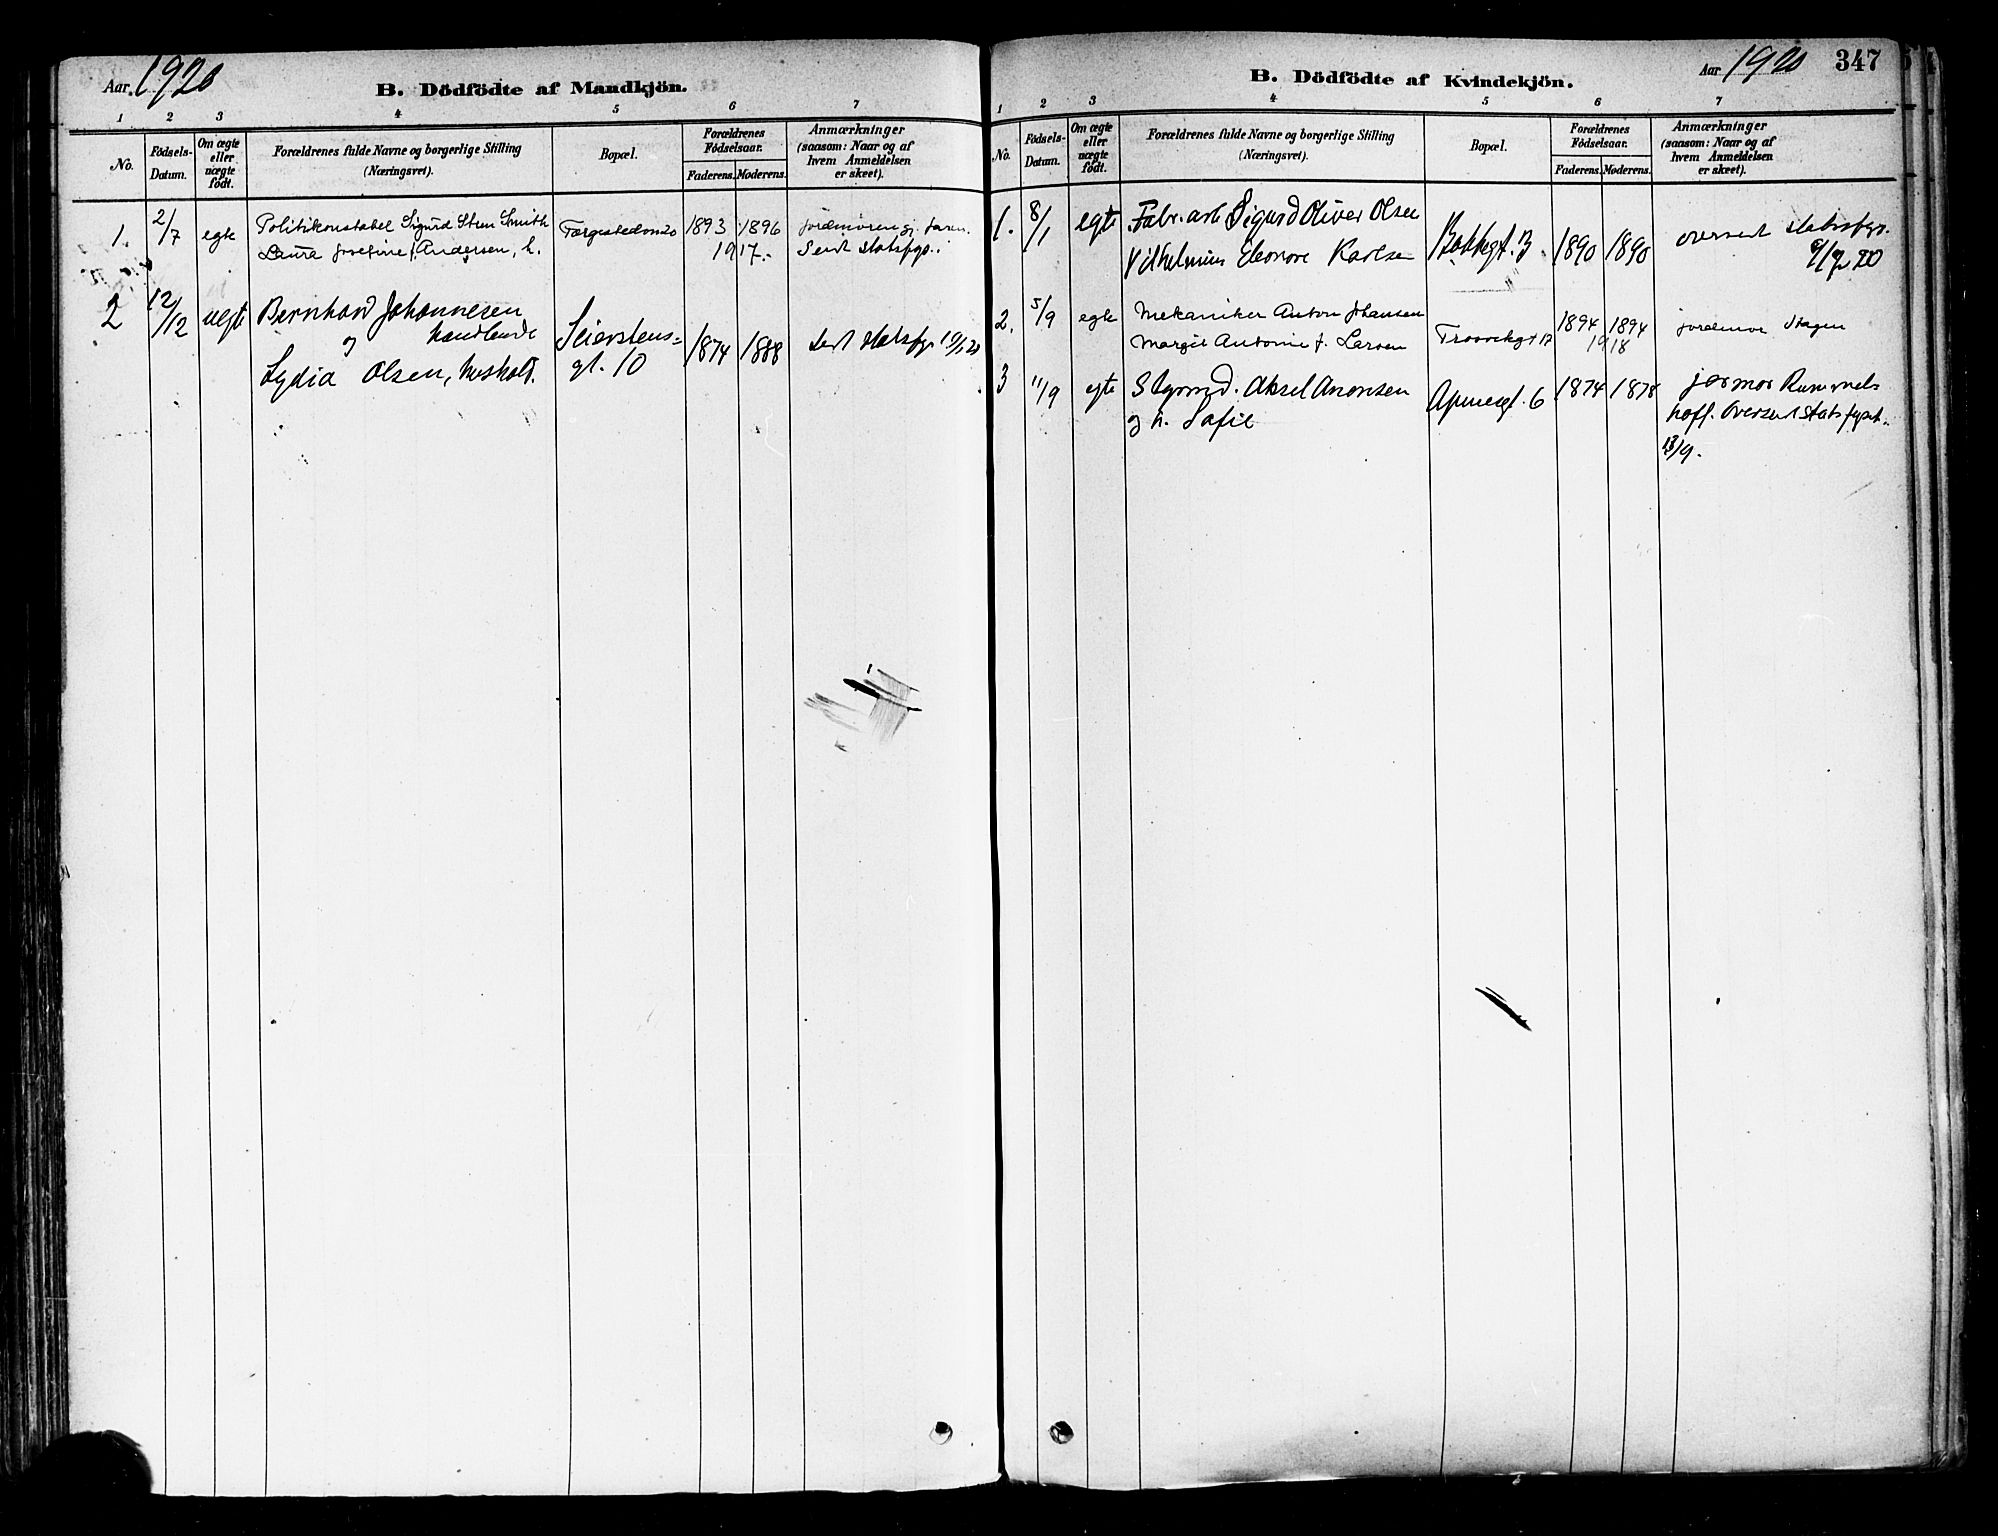 Aar 1920
B. Dödfödte af Mandkjön.
1 2 3 4 5 6 7
No. Födsels-Datum. Om ægte eller uægte födt. Forældrenes fulde Navne og borgerlige Stilling (Næringsvei). Bopæl. Forældrenes Födselsaar. Faderens. Moderens. Anmærkninger (saasom: Naar og af hvem Anmeldelsen er skeet).
1. 2/7 egte Politikonstabel Sigurd Sten Smith 1893 1896 jordmoren gj. faren.
Laura Josefine f. Andersen, h. 1917. Sendt statsfys.
2 12/12 uegte Bernhard Johannesen
og handlende Seierstens= 1874 1888 sendt statsfys.
Lydia Olsen, hushold. gt. 10
Aar 1920 347
B. Dödfödte af Kvindekjön.
1 2 3 4 5 6 7
No. Födsels-Datum. Om ægte eller uægte födt. Forældrenes fulde Navne og borgerlige Stilling (Næringsvei). Bopæl. Forældrenes Födselsaar. Faderens. Moderens. Anmærkninger (saasom: Naar og af hvem Anmeldelsen er skeet).
1. 8/1 egte Fabr. arb Sigurd Oliver Olsen 1890 1890 oversendt statsfys.
Vilhelmine Eleonore Karlsen
2. 5/9 egte Mekaniker Anton Johansen 1894 1894 jordmor Hagen
Margit Antonie f. Larsen 1918
3 11/9 egte Aksel 6 1874 1878 jormor Rummel-
og h. Sofie hoff. Oversendt Statsfysik.
13/9.